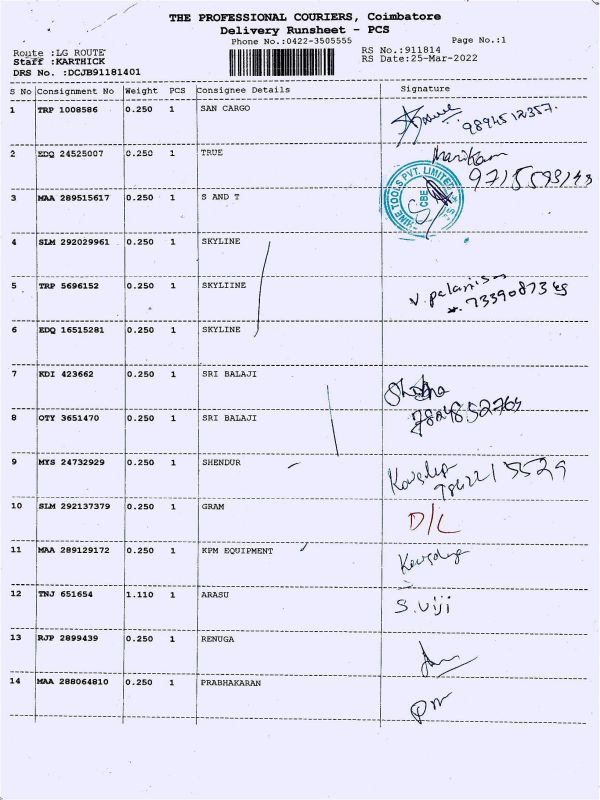 THE PROFESSIONAL COURIERS, Coimbatore
Delivery Runsheet - PCS
Phone No.:0422-3505555
Page No.:1
Route :LG ROUTE
Staff :KARTHICK
DRS No. :DCJB91181401
RS No.:911814
RS Date:25-Mar-2022
S No Consignment No Weight PCS Consignee Details Signature
1 TRP 1008586 0.250 1 SAN CARGO 9894512357.
2 EDQ 24525007 0.250 1 TRUE
3 MAA 289515617 0.250 1 S AND T
TOOLS PVT. LIMITED
CBE
4 SLM 292029961 0.250 1 SKYLINE
5 TRP 5696152 0.250 1 SKYLIINE
6 EDQ 16515281 0.250 1 SKYLINE
7 KDI 423662 0.250 1 SRI BALAJI
8 OTY 3651470 0.250 1 SRI BALAJI
9 MYS 24732929 0.250 1 SHENDUR
10 SLM 292137379 0.250 1 GRAM D/L
11 MAA 289129172 0.250 1 KPM EQUIPMENT
12 TNJ 651654 1.110 1 ARASU S.Viji
13 RJP 2899439 0.250 1 RENUGA
14 MAA 288064810 0.250 1 PRABHAKARAN